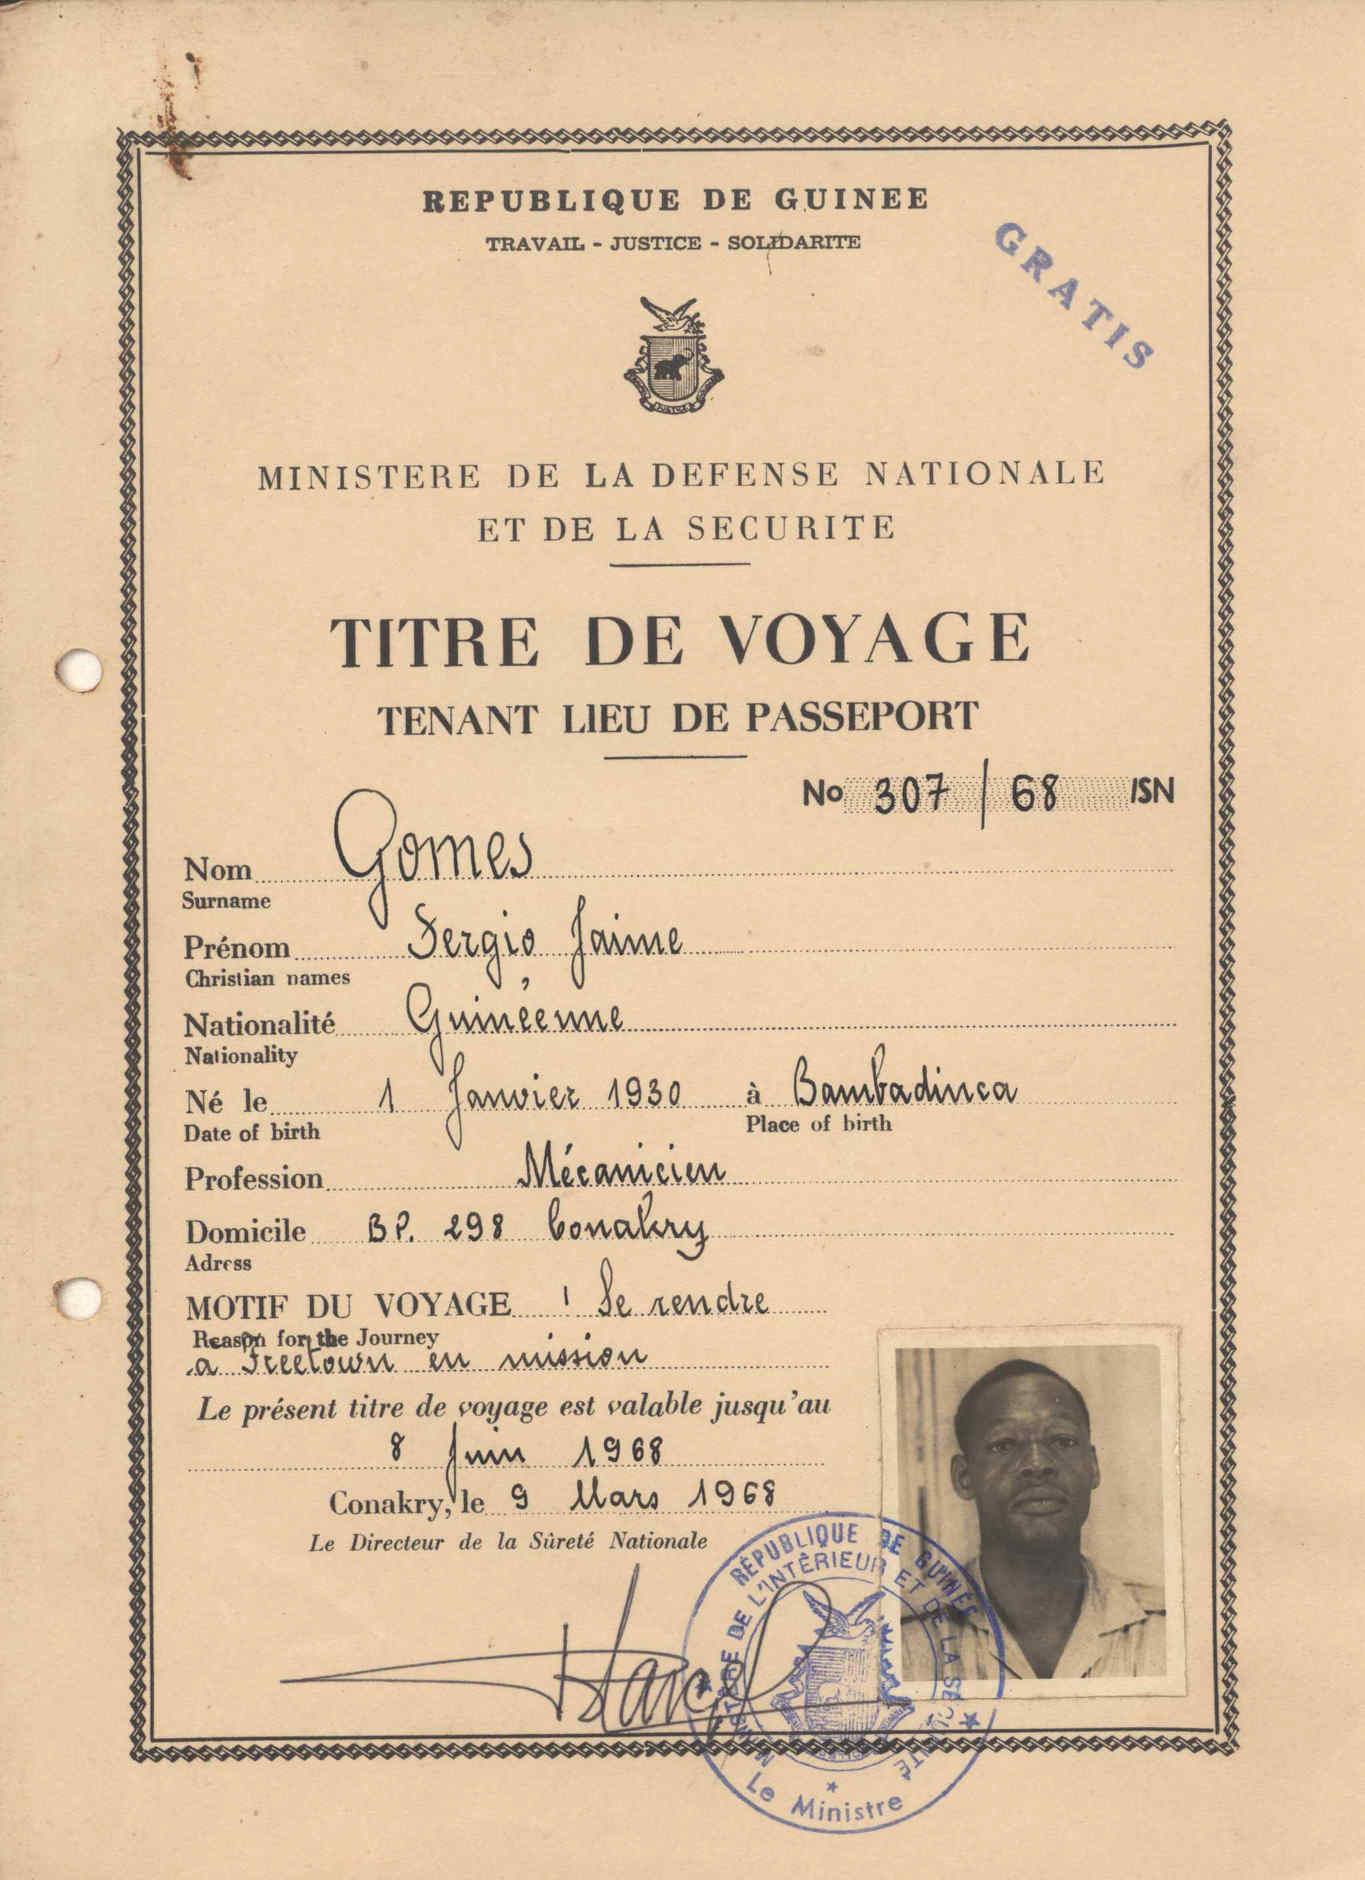 REPUBLIQUE DE GUINEE
TRAVAIL - JUSTICE - SOLIDARITE
GRATIS
MINISTERE DE LA DEFENSE NATIONALE
ET DE LA SECURITE
TITRE DE VOYAGE
TENANT LIEU DE PASSEPORT
No 307 / 68 /SN
Nom Gomes
Surname
Prénom Sergio Jaime
Christian names
Nationalité Guinéenne
Nationality
Né le 1 Janvier 1930 à Bambadinca
Date of birth Place of birth
Profession Mécanicien
Domicile BP. 298 Conakry
Adress
MOTIF DU VOYAGE : Se rendre
Reason for the Journey
a Freetown en mission
Le présent titre de voyage est valable jusqu'au
8 Juin 1968
Conakry, le 9 Mars 1968
Le Directeur de la Sûreté Nationale
RÉPUBLIQUE DE GUINÉE
MINISTÈRE DE L'INTÉRIEUR ET DE LA SÉCURITÉ
Le Ministre